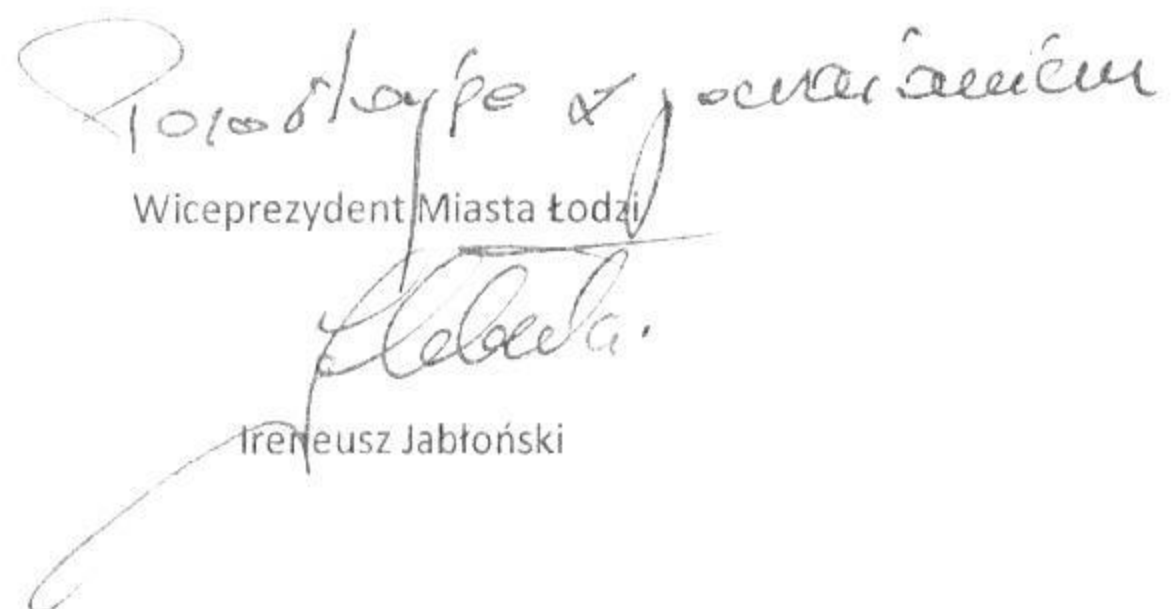 Pozostaję z poważaniem
Wiceprezydent Miasta Łodzi
Ireneusz Jabłoński